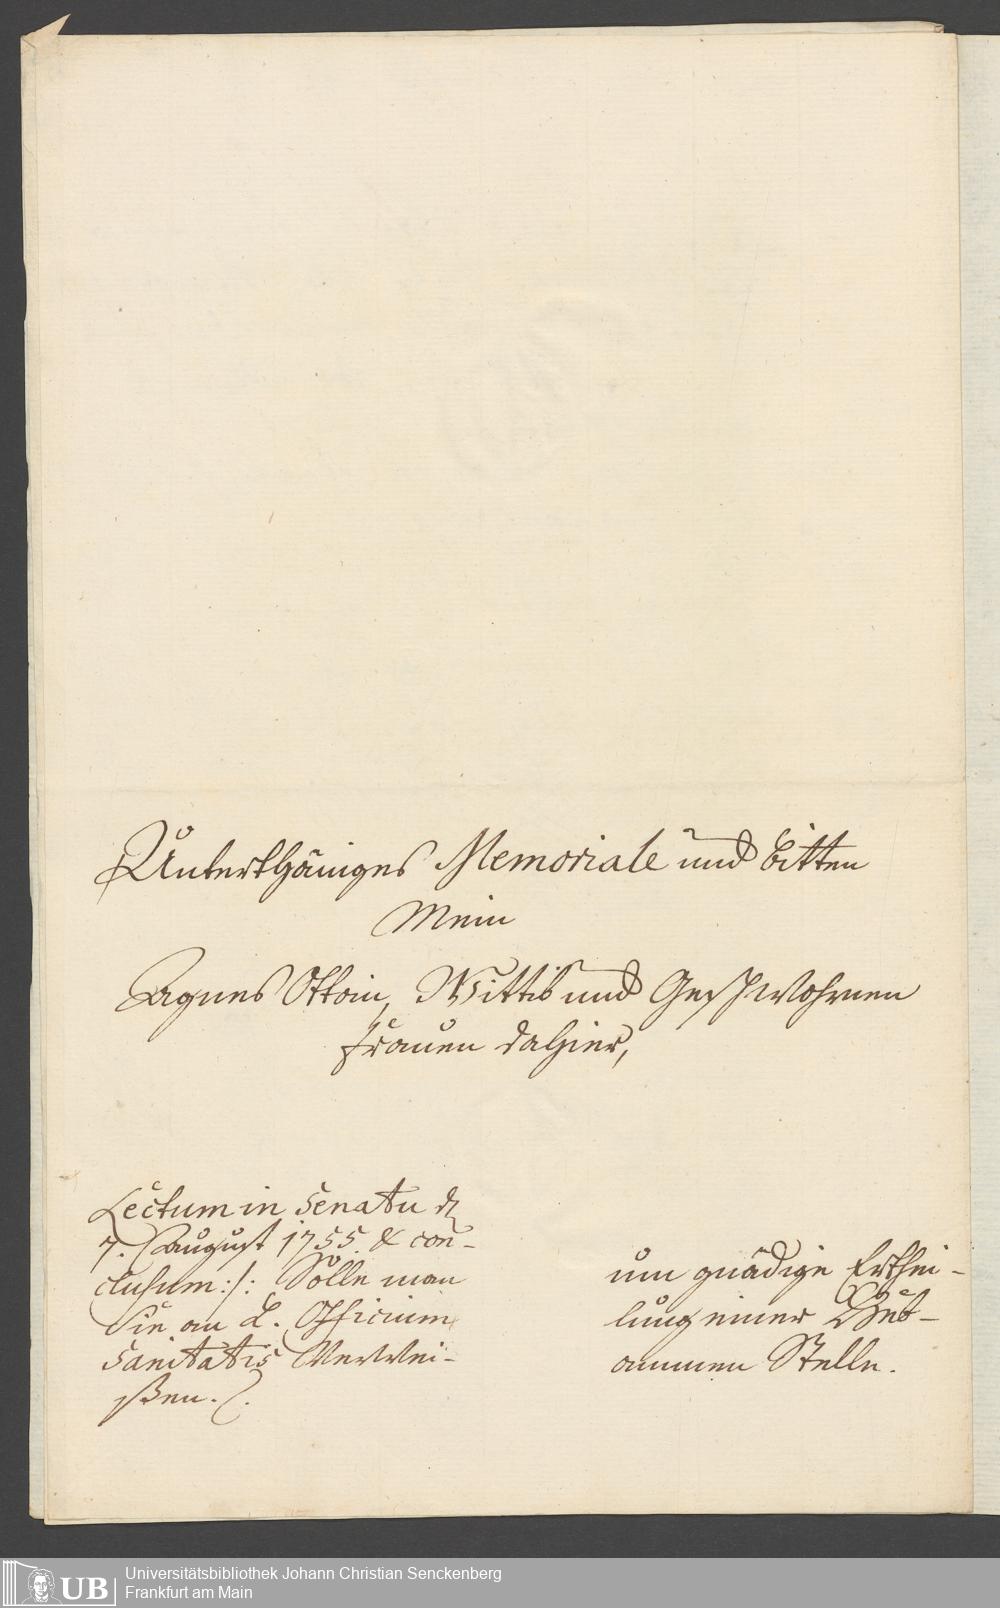 Unterthäniges Memoriale und bitten
Mein
Agnes Ottoin, Wittib und Geschwohrnen
Frauen dahier,
Lectum in Senatu d
7. August 1755. & con-
clusum :/: Solle man
Sie an L. Officium
Sanitatis Verwei-
ßen. /.
um gnädige Erthei-
lung einer Heb-
ammen Stelle.
UB
Universitätsbibliothek Johann Christian Senckenberg
Frankfurt am Main